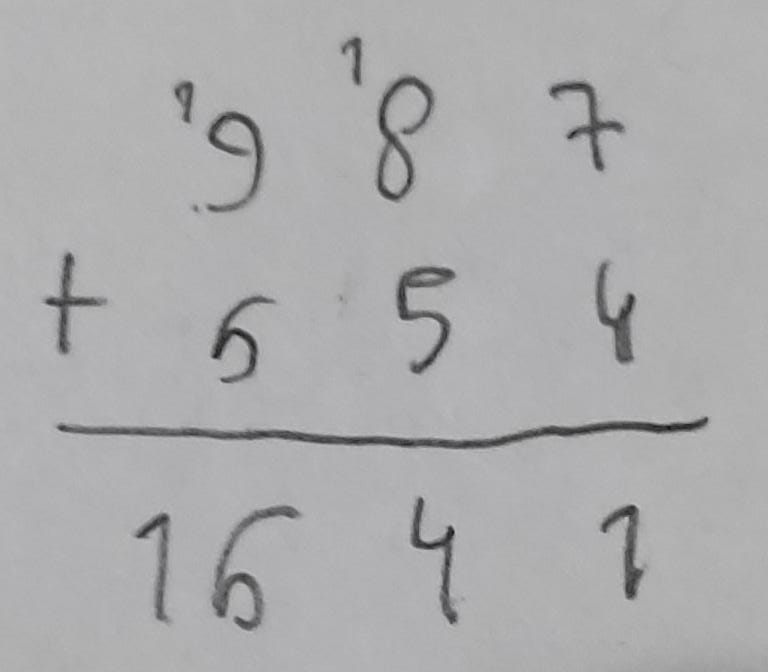 1 1
9 8 7
+ 6 5 4
1 6 4 1